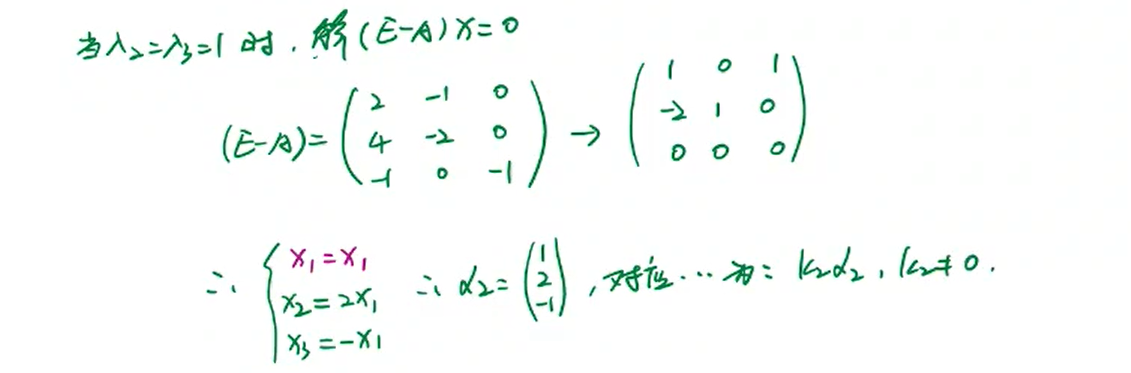 当λ₂=λ₃=1时,解(E-A)x=0
(E-A)=(2 -1 0; 4 -2 0; -1 0 -1) → (1 0 1; -2 1 0; 0 0 0)
∴ { x₁=x₁ x₂=2x₁ x₃=-x₁ ∴ α₂=(1 2 -1),对应…为: k₂α₂, k₂≠0.